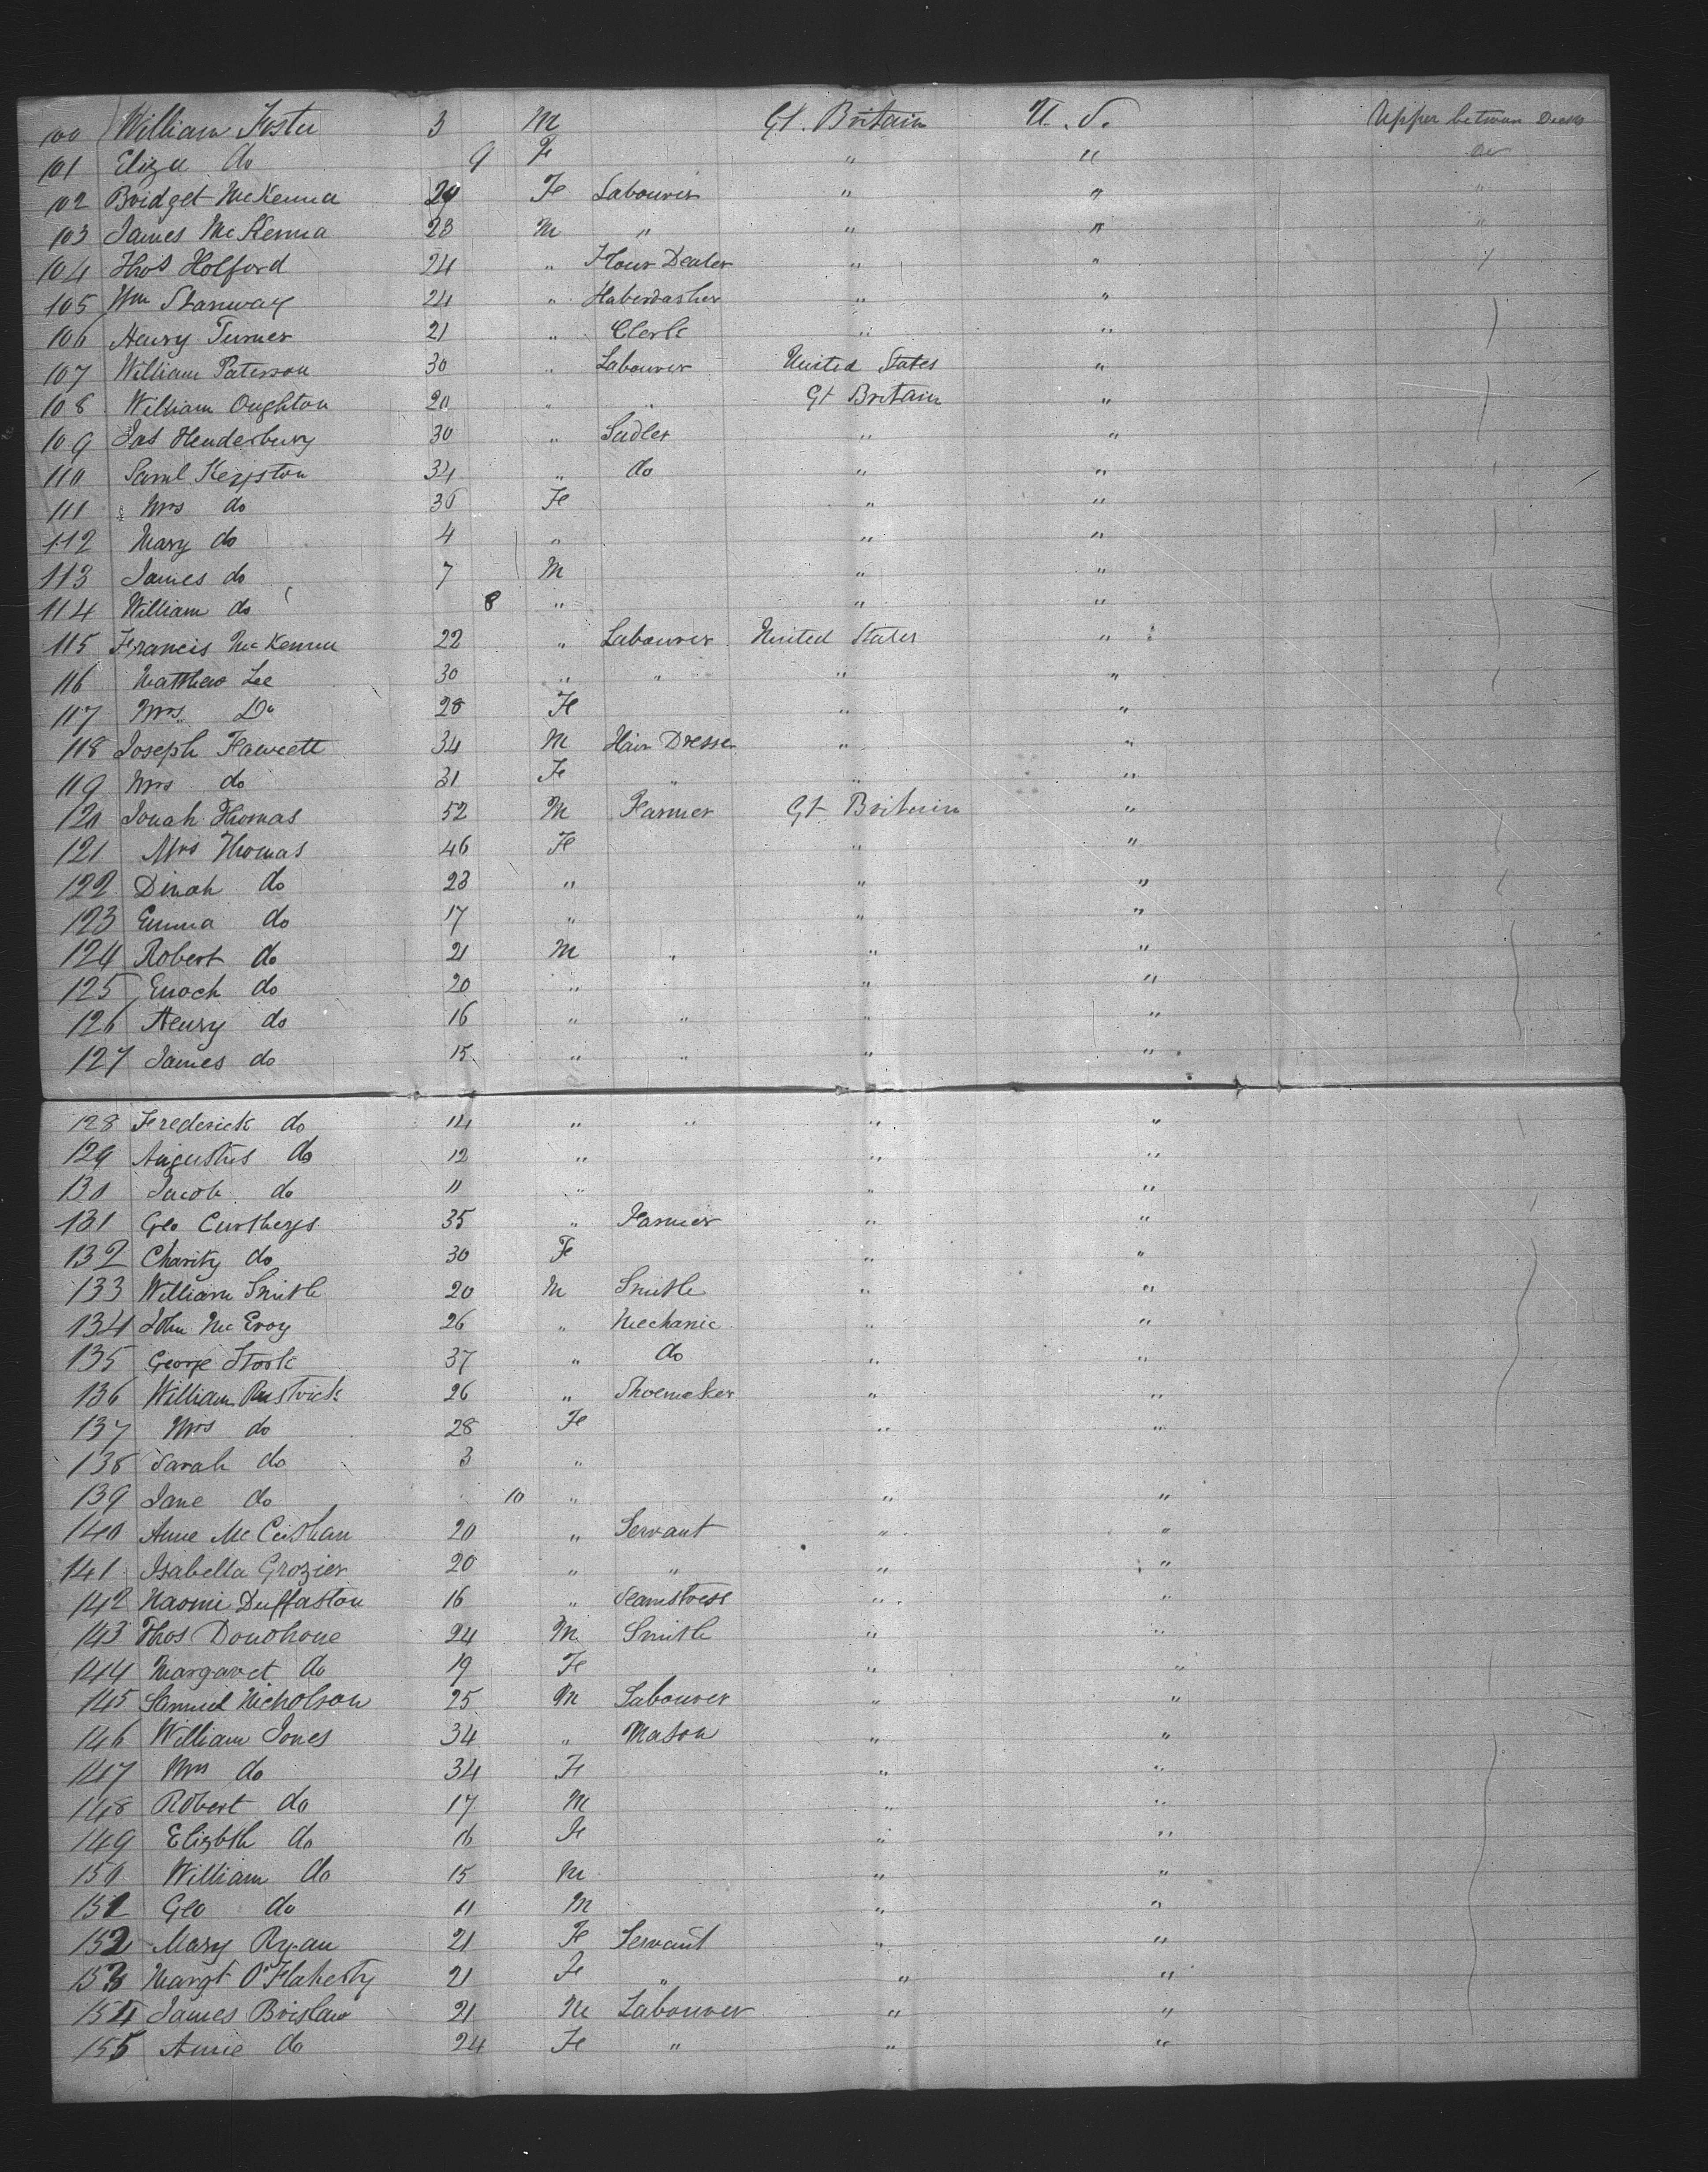 100 William Foster 3 M Gt. Britain U.S. Upper between Decks
101 Eliza do 9 F " " do
102 Bridget McKenna 29 Fe Labourer " " "
103 James McKenna 23 M " " " "
104 Thos Holford 24 " Flour Dealer " " "
105 Wm Stanway 24 " Haberdasher " "
106 Henry Turner 21 " Clerk " "
107 William Paterson 30 " Labourer United States "
108 William Oughton 20 " " Gt Britain "
109 Jas Henderbury 30 " Sadler " "
110 Saml Kegston 34 " do " "
111 Mrs do 36 Fe " "
112 Mary do 4 " " "
113 James do 7 M " "
114 William do 8 " " "
115 Francis McKenna 22 " Labourer United States "
116 Matthew Lee 30 " " " "
117 Mrs Do 28 Fe " "
118 Joseph Fawcett 34 M Hair Dresser " "
119 Mrs do 31 Fe " " "
120 Jonah Thomas 52 M Farmer Gt Britain "
121 Mrs Thomas 46 Fe " "
122 Dinah do 23 " " "
123 Emma do 17 " " "
124 Robert do 21 M " " "
125 Enoch do 20 " " "
126 Henry do 16 " " " "
127 James do 15 " " " "
128 Frederick do 14 " " " "
129 Augustus do 12 " " "
130 Jacob do 11 " " "
131 Geo 35 " Farmer " "
132 Charity do 30 Fe " "
133 William Smith 20 M Smith " "
134 John McEvoy 26 " Mechanic " "
135 George Stork 37 " do " "
136 William Rustrick 26 " Shoemaker " "
137 Mrs do 28 Fe " "
138 Sarah do 3 "
139 Jane do 10 " " "
140 Anne 20 " Servant " "
141 Isabella Grozier 20 " " " "
142 Naomi Duffaston 16 " Seamstress " "
143 Thos Donohoue 24 M Smith " "
144 Margaret do 19 Fe " "
145 Samuel Nicholson 25 M Labourer " "
146 William Jones 34 " Mason " "
147 Mrs do 34 Fe " "
148 Robert do 17 M " "
149 Elizbth do 16 Fe " "
150 William do 15 M " "
151 Geo do 11 M " "
152 Mary Ryan 21 Fe Servant " "
153 Margt O'Flaherty 21 Fe " " "
154 James Brislaw 21 M Labourer " "
155 Annie do 24 Fe " " "